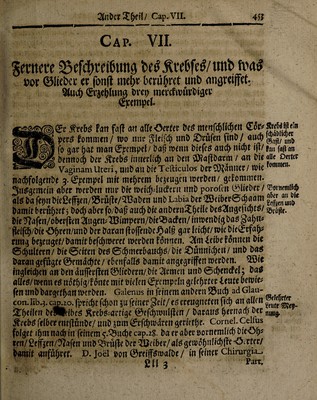 Ander Theil/ Cap. VII. 453
CAP. VII.
Fernere Beschreibung des Krebses/ und was
vor Glieder er sonst mehr berühret und angreiffet.
Auch Erzehlung drey merckwürdiger
Exempel.
DEr Krebs kan fast an alle Oerter des menschlichen Cör-
pers kommen/ wo nur Fleisch und Drüsen sind/ auch
so gar hat man Exempel/ daß wenn dieses auch nicht ist/
dennoch der Krebs innerlich an den Mastdarm/ an die
Vaginam Uteri, und an die Testiculos der Männer/ wie
nachfolgende 3. Exempel mit mehrem bezeugen werden/ gekommen.
Insgemein aber werden nur die weich-luckern und porosen Glieder/
als da seyn die Leffzen/ Brüste/ Waden und Labia der Weiber Schaam
damit berühret; doch aber so/ daß auch die andern Theile des Angesichts/
die Nasen/ obersten Augen-Wimpern/ die Backen/ inwendig das Zahn-
fleisch/ die Ohren/ und der daran stossende Halß gar leicht/ wie die Erfah-
rung bezeuget/ damit beschweret werden können. Am Leibe könten die
Schultern/ die Seiten des Schmerbauchs/ die Dünnichen/ und das
daran gefügte Gemächte/ ebenfalls damit angegriffen werden. Wie
ingleichen an den äussersten Gliedern/ die Armen und Schenckel; das
alles/ wenn es nöthig/ könte mit vielen Exempeln gelehrter Leute bewie-
sen und dargethan werden. Galenus in seinem andern Buch ad Glau-
con. lib. 4. cap. 10. spricht schon zu seiner Zeit/ es ereugneten sich an allen
Theilen des Leibes Krebs-artige Geschwulsten/ daraus hernach der
Krebs selber entstünde/ und zum Erschwären geriethe. Cornel. Celsus
folget ihm nach in seinem 5. Buche cap. 18. da er aber vornemlich die Oh-
ren/ Leffzen/ Nasen und Brüste der Weiber/ als gewöhnlichste Oerter/
damit anführet. D. Joël von Greiffswalde/ in seiner Chirurgia.
Lll 3 Part.
Krebs ist ein
schädlicher
Gast/ und
kan fast an
alle Oerter
kommen.
Vornemlich
aber an die
Leffzen und
Brüste.
Gelehrter
Leute Mey-
nung.